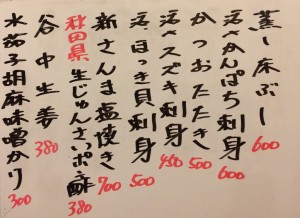 蒸し床ぶし 600
活さかんぱち刺身 600
かつおたたき 500
活〆スズキ刺身 450
活ほっき貝刺身 500
新さんま塩焼き 700
秋田県生じゅんさいポン酢 380
谷中生姜 380
水茄子胡麻味噌かり 300